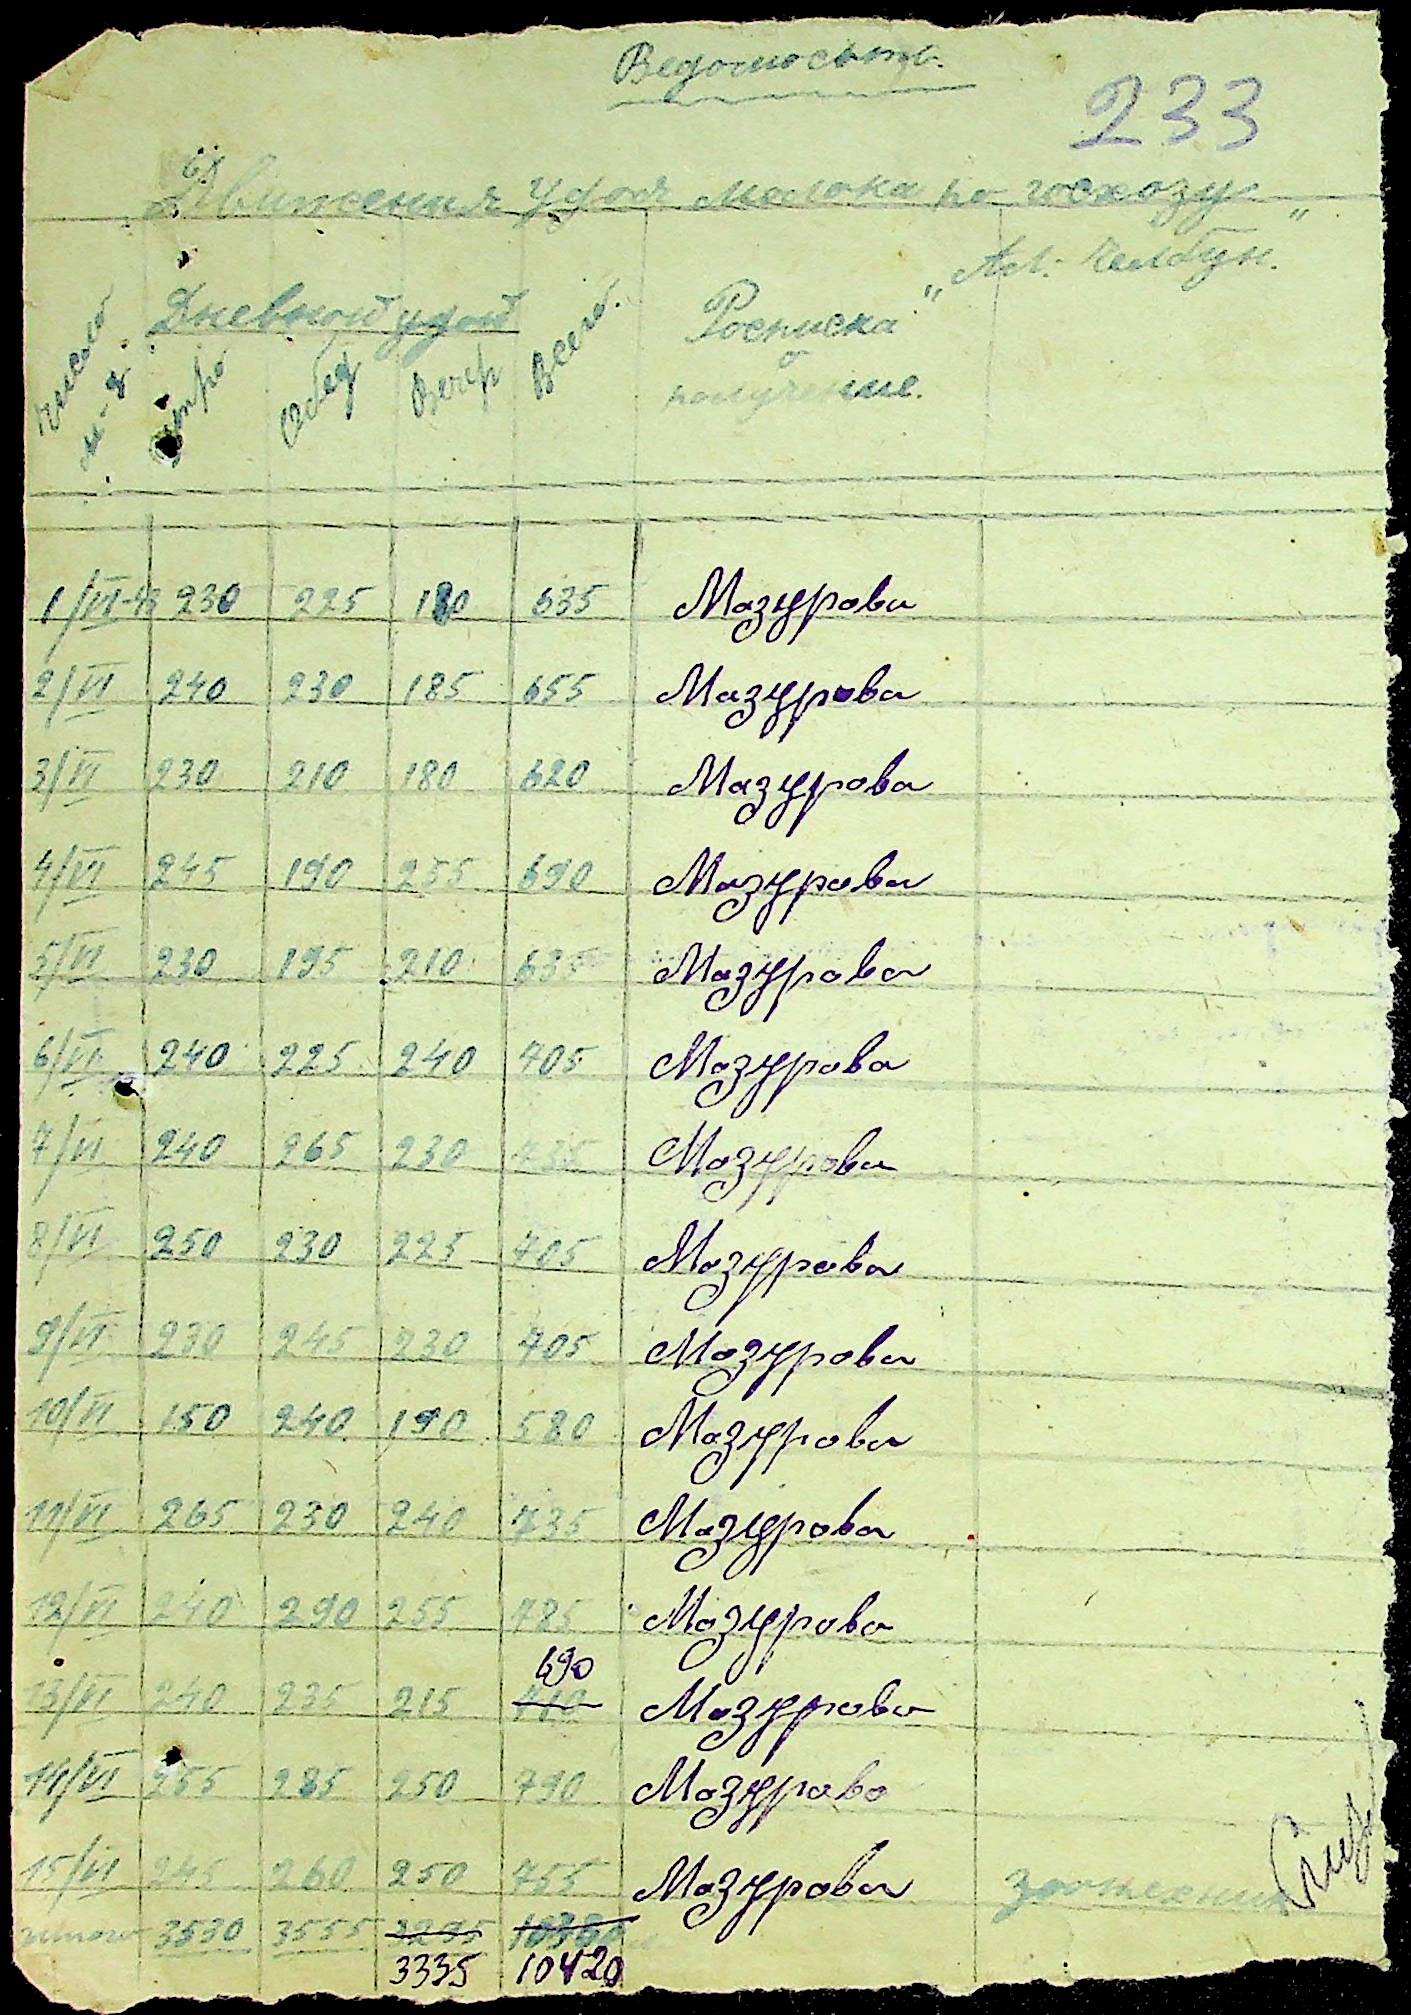 Ведомость.
233
Движения удоя молока по госхозу
"Ак. Челбун."
Число м-ц Дневной удой Всего. Росписка о получение.
утро Обед Вечер
1/VI-43 230 225 180 635 Мазурова
2/VI 240 230 185 655 Мазурова
3/VI 230 210 180 620 Мазурова
4/VI 245 190 255 690 Мазурова
5/VI 230 195 210 635 Мазурова
6/VI 240 225 240 705 Мазурова
7/VI 240 265 230 735 Мазурова
8/VI 250 230 225 705 Мазурова
9/VI 230 245 230 705 Мазурова
10/VI 150 240 190 580 Мазурова
11/VI 265 230 240 735 Мазурова
12/VI 240 290 255 785 Мазурова
690
13/VI 240 235 215 710 Мазурова
14/VI 255 285 250 790 Мазурова
15/VI 245 260 250 755 Мазурова зоотехник
итого 3530 3555 3295
3335 10420